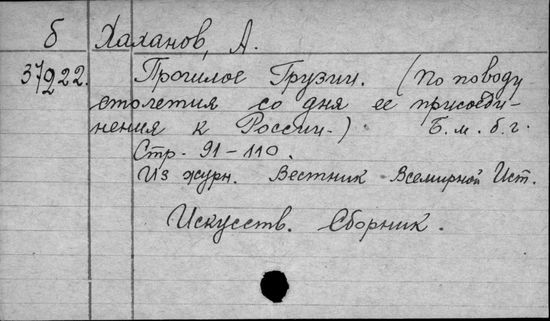 б Хаханов, А.
37922. Прошлое Грузии. (По поводу
столетия со дня ее присоеди-
нения к России.) Б. м. б. г.
Стр. 91-110.
Из журн. Вестник Всемирной Ист.
Искусств. Сборник.